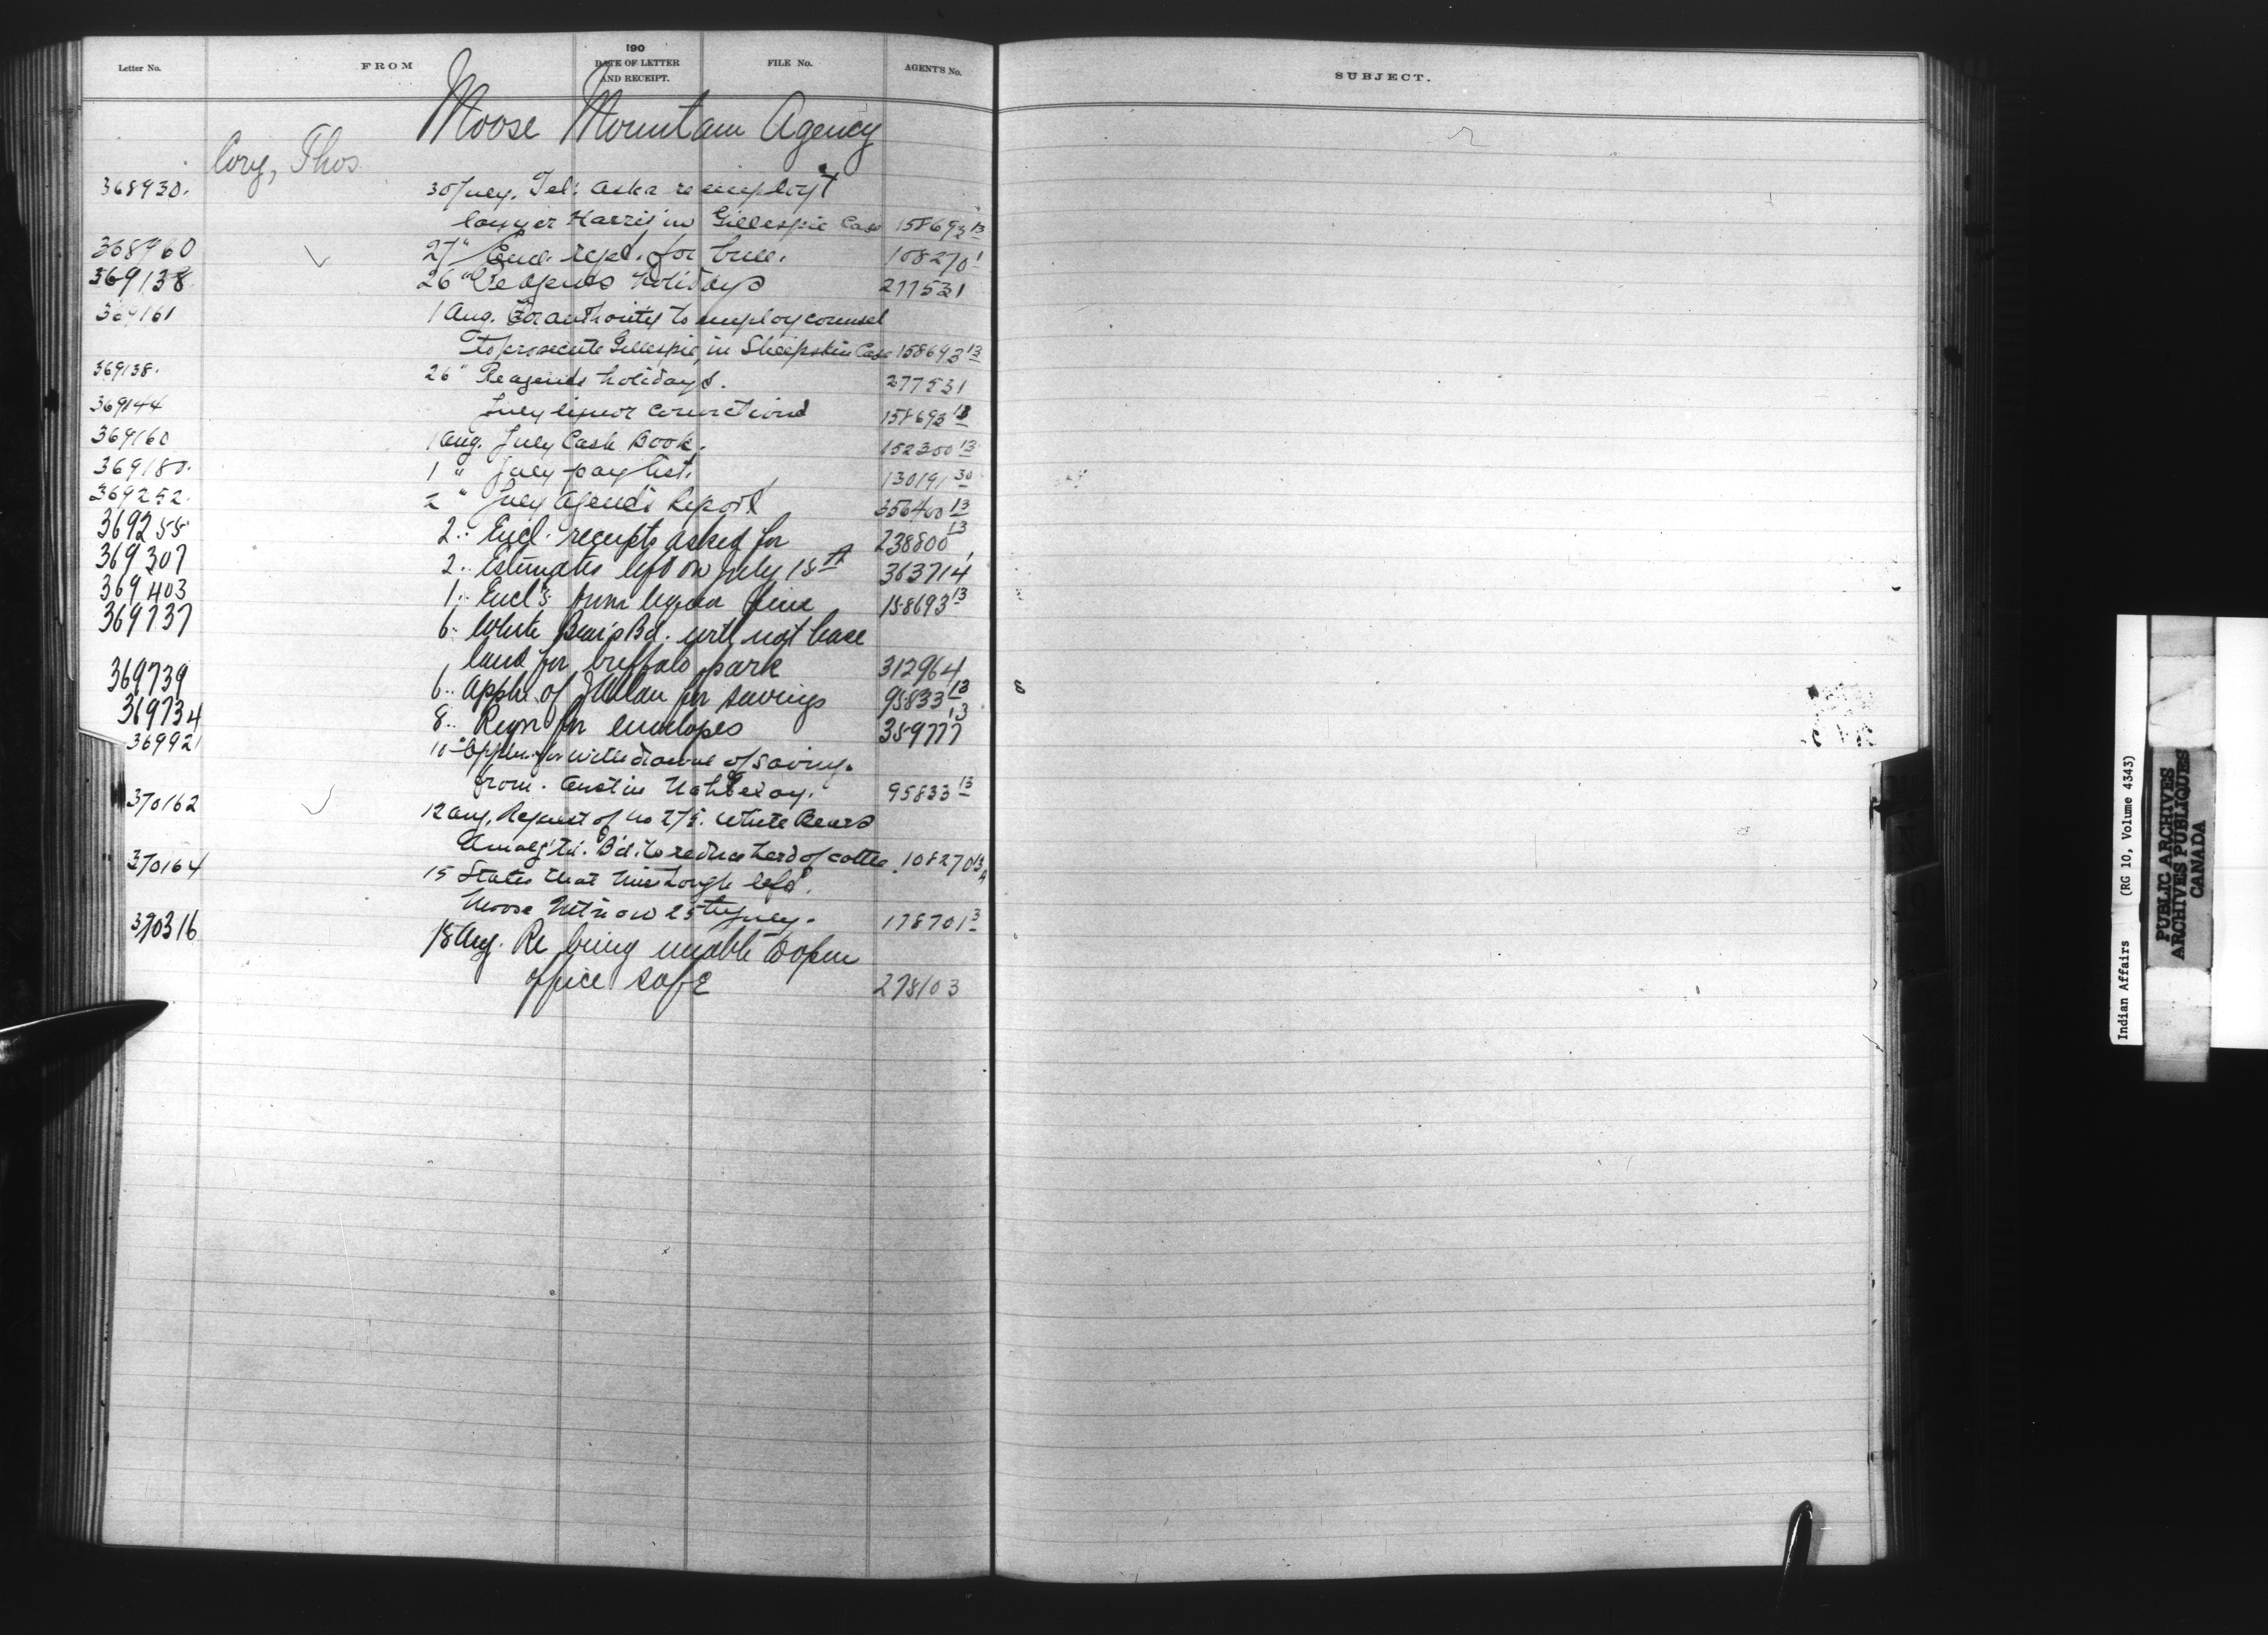 190
Letter No. FROM DATE OF LETTER AND RECEIPT. FILE No. AGENT'S No.
SUBJECT.
Moose Mountain Agency
Cory, Thos.
368930. 30 July. Tel: asks re employt
lawyer Harris in Gillespie Case 158693 13
368960 27 " Encl. reqd. for bull. 108270 1
369138 26 " Re agents holidays 277531
369161 1 Aug. For authority to employ counsel
to prosecute Gillespie, in Sheepskin Case 158693 13
369138. 26 " Re agents holidays. 277531
369144 July liquor convictions 158693 13
369160 1 Aug. July Cash Book. 152300 13
369180. 1 " July pay list. 130191 30
369252. 2 " July Agent's Report 356400 13
369255 2 " Encl. receipts asked for 238800 13
369307 2 " Estimates left on July 18th 363714
369403 1 " Encl's from liquor fine 158693 13
369737 6 " White Bear's Bd. will not lease
land for buffalo park 312964
369739 6 " Appln. of for savings 95833 13
369734 8 " Reqn for envelopes 359777 13
369921 10 " Appln. for withdrawal of savings
from. Austin 95833 13
370162 12 Aug. Request of No 275. White Bears
Amalg'td. Bd. to reduce herd of cattle. 108270 13 A
370164 15 States that Miss Lough left
Moose Mt'n on 25th July. 178701 3
370316 18 Aug. Re being unable to open
office safe 278103
Indian Affairs (RG 10, Volume 4343)
PUBLIC ARCHIVES
ARCHIVES PUBLIQUES
CANADA